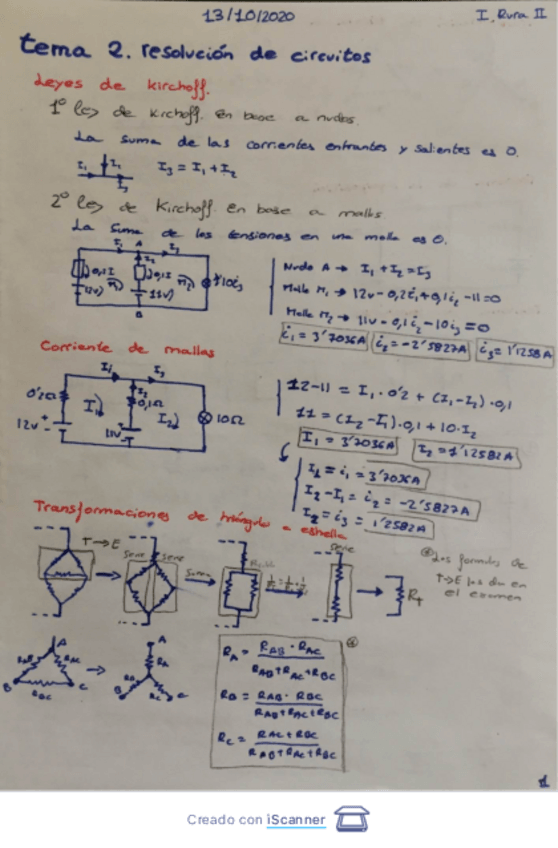 13/10/2020
I. Rura II
tema 2. resolución de circuitos
Leyes de Kirchoff.
1º ley de Kirchoff. en base a nudos.
La suma de las corrientes entrantes y salientes es 0.
I₁ I₂ I₃ I₃ = I₁ + I₂
2º ley de Kirchoff. en base a mallas
La suma de las tensiones en una malla es 0.
I₁ A I₃
I₂
12V 11V 10i₃
B
Nudo A → I₁ + I₂ = I₃
Malla M₁ → 12V - 0,2i₁ + 0,1i₂ - 11 = 0
Malla M₂ → 11V - 0,1i₂ - 10i₃ = 0
i₁ = 3'7036A i₂ = -2'5827A i₃ = 1'1258A
Corriente de mallas
I₁ I₃
0'2Ω I₁ I₂ 0,1Ω I₂ 10Ω
12V 11V
12-11 = I₁·0'2 + (I₁-I₂)·0,1
11 = (I₂-I₁)·0,1 + 10·I₂
I₁ = 3'7036A I₂ = 1'12582A
I₁ = i₁ = 3'7036A
I₂-I₁ = i₂ = -2'5827A
I₂ = i₃ = 1'2582A
Transformaciones de triángulo a estrella
T→E
serie serie
suma
serie
R_T
⊛ Las formulas de
T→E las dan en
el examen
A R_AB R_AC B R_BC C
A R_A B R_C C
R_A = R_AB · R_AC / R_AB + R_AC + R_BC
R_B = R_AB · R_BC / R_AB + R_AC + R_BC
R_C = R_AC + R_BC / R_AB + R_AC + R_BC
⊛
1
Creado con iScanner